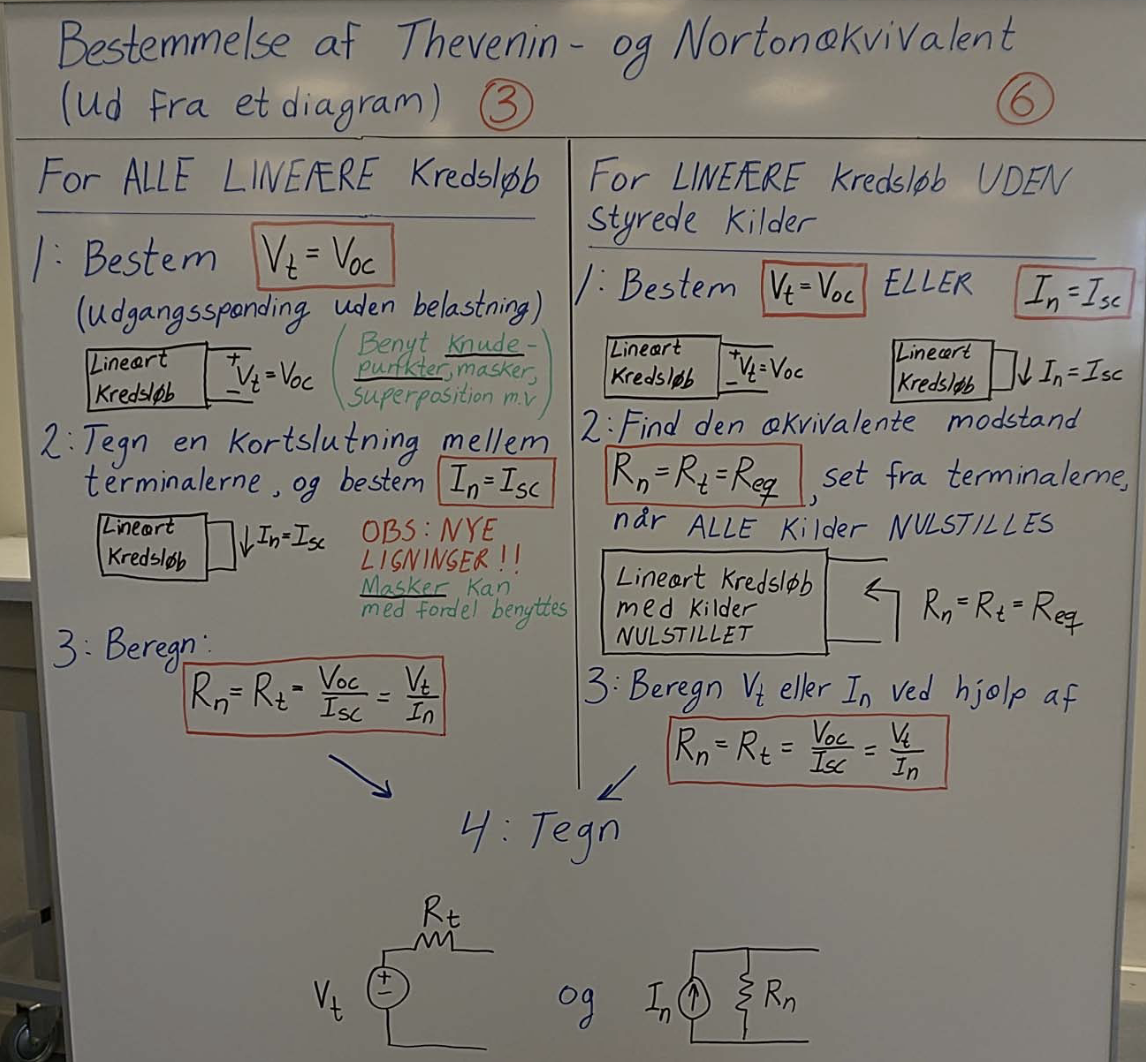 Bestemmelse af Thevenin- og Nortonækvivalent
(Ud fra et diagram) ③ ⑥
For ALLE LINEÆRE Kredsløb
1: Bestem Vt = Voc
(Udgangsspænding uden belastning)
Lineært
Kredsløb
+
-
Vt = Voc
(Benyt Knude-
punkter, masker,
superposition m.v)
2: Tegn en kortslutning mellem
terminalerne, og bestem In = Isc
Lineært
Kredsløb
↓ In = Isc
OBS: NYE
LIGNINGER!!
Masker kan
med fordel benyttes
3: Beregn:
Rn = Rt = Voc/Isc = Vt/In
For LINEÆRE kredsløb UDEN
styrede Kilder
1: Bestem Vt = Voc ELLER In = Isc
Lineært
Kredsløb
+
-
Vt = Voc
Lineært
Kredsløb
↓ In = Isc
2: Find den ækvivalente modstand
Rn = Rt = Req, set fra terminalerne,
når ALLE Kilder NULSTILLES
Lineært Kredsløb
med Kilder
NULSTILLET
Rn = Rt = Req
3: Beregn Vt eller In ved hjælp af
Rn = Rt = Voc/Isc = Vt/In
4: Tegn
Rt
Vt
+
-
og
In
Rn